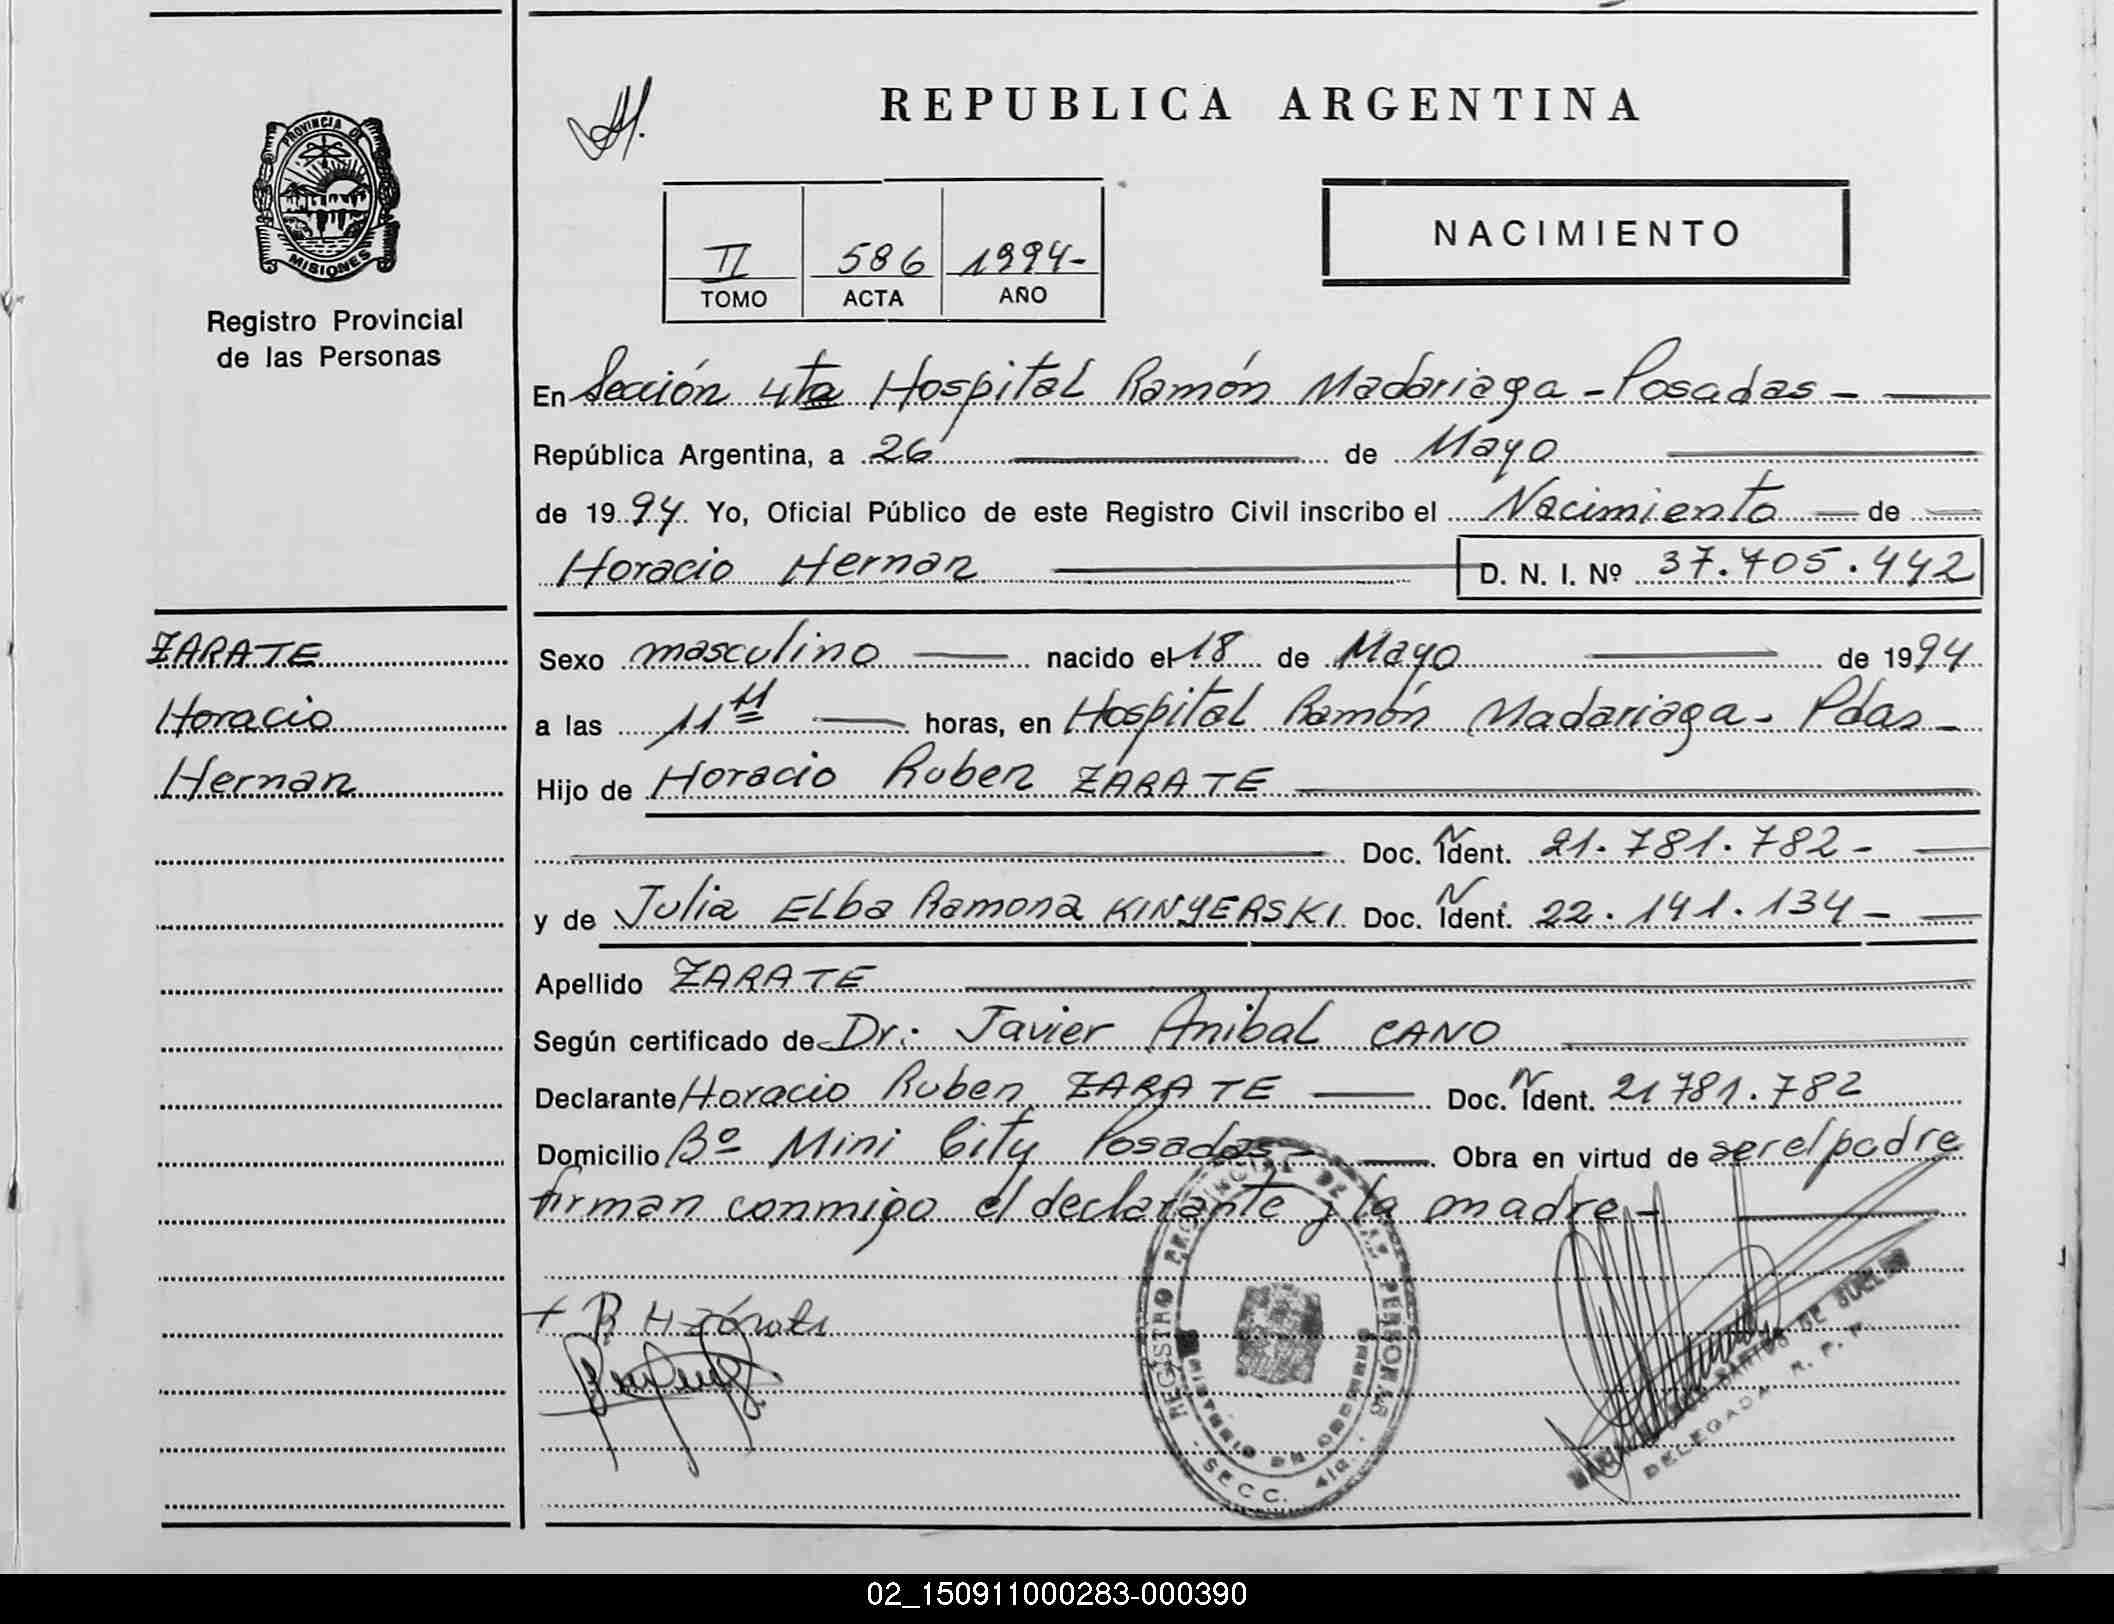 PROVINCIA DE
MISIONES
Registro Provincial
de las Personas
REPUBLICA ARGENTINA
NACIMIENTO
II 586 1994-
TOMO ACTA AÑO
En Sección 4ta Hospital Ramón Madariaga - Posadas -
República Argentina, a 26 de Mayo
de 1994 Yo, Oficial Público de este Registro Civil inscribo el Nacimiento de
Horacio Hernan D. N. I. Nº 37.705.442
ZARATE
Horacio
Hernan
Sexo masculino nacido el 18 de Mayo de 1994
a las 11 11 horas, en Hospital Ramón Madariaga - Pdas -
Hijo de Horacio Ruben ZARATE
Doc. N Ident. 21.781.782 -
y de Julia ELba Ramona KINYERSKI Doc. N Ident. 22.141.134 -
Apellido ZARATE
Según certificado de Dr: Javier Anibal CANO
Declarante Horacio Ruben ZARATE Doc. N Ident. 21781.782
Domicilio Bº Mini City Posadas - Obra en virtud de ser el padre
firman conmigo el declarante y la madre -
REGISTRO PROVINCIAL DE LAS PERSONAS
MINISTERIO DE GOBIERNO
SECC. 4ta.
DELEGADA R. P. P.
02_150911000283-000390